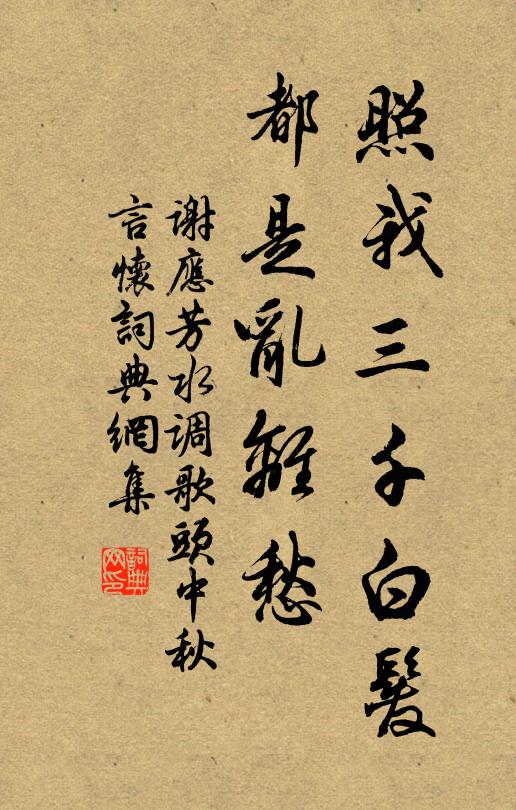 照我三千白髮
都是亂離愁
謝應芳水调歌頭中秋
言懷詞典網集
詞典网印